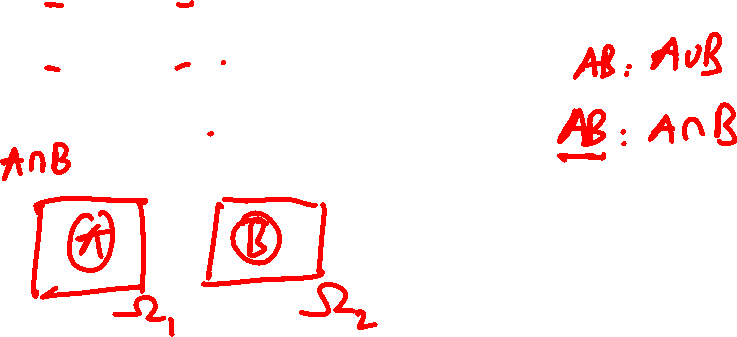 AB: A∪B
AB: A∩B
A∩B
A B
Ω₁ Ω₂